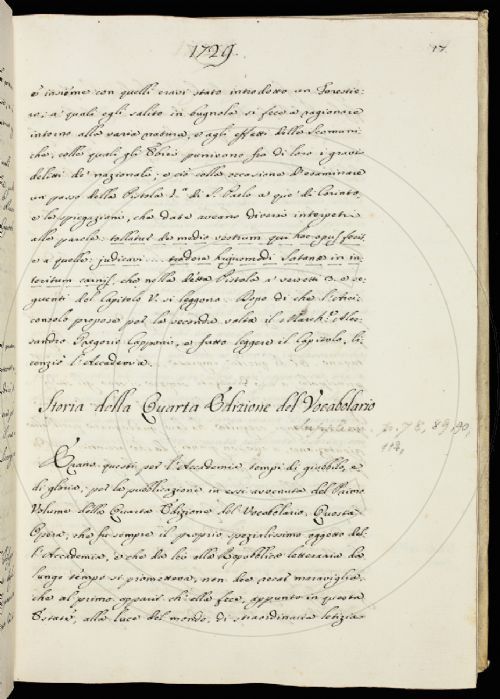 1729.
17.
e insieme con quelli eravi stato introdotto un Forestie-
re; a' quali egli salito in bugnola si fece a ragionare
intorno alla varia natura, e agli effetti delle Scomuni-
che, colle quali gli Ebrei punivano fra di loro i gravi
delitti de' nazionali; e ciò colla occasione d'esaminare
un passo della Pistola 1.a di S. Paolo a que' di Corinto,
e le spiegazioni, che date aveano diversi interpetri
alle parole: tollatur de medio vestrum qui hoc opus fecit,
e a quelle: judicavi ... tradere hujusmodi Satanæ in in-
teritum carnis, che nella detta Pistola a' versetti 3. e se-
guenti del Capitolo V. si leggono. Dopo di che l'Arci-
consolo propose per la seconda volta il March.e Ales-
sandro Gregorio Capponi, e fatto leggere il Capitolo, li-
cenziò l'Accademia.
Storia della Quarta Edizione del Vocabolario
p. 78, 89, 90,
112,
Erano questi per l'Accademia tempi di giubbilo, e
di gloria, per la pubblicazione in essi avvenuta del Primo
Volume della Quarta Edizione del Vocabolario. Questa
Opera, che fu sempre il proprio spezialissimo oggetto del-
l'Accademia, e che da lei alla Repubblica letteraria da
lungo tempo si prometteva, non dee recar maraviglia,
che al primo apparir ch'ella fece, appunto in questa
Estate, alla luce del mondo, di straordinaria letizia